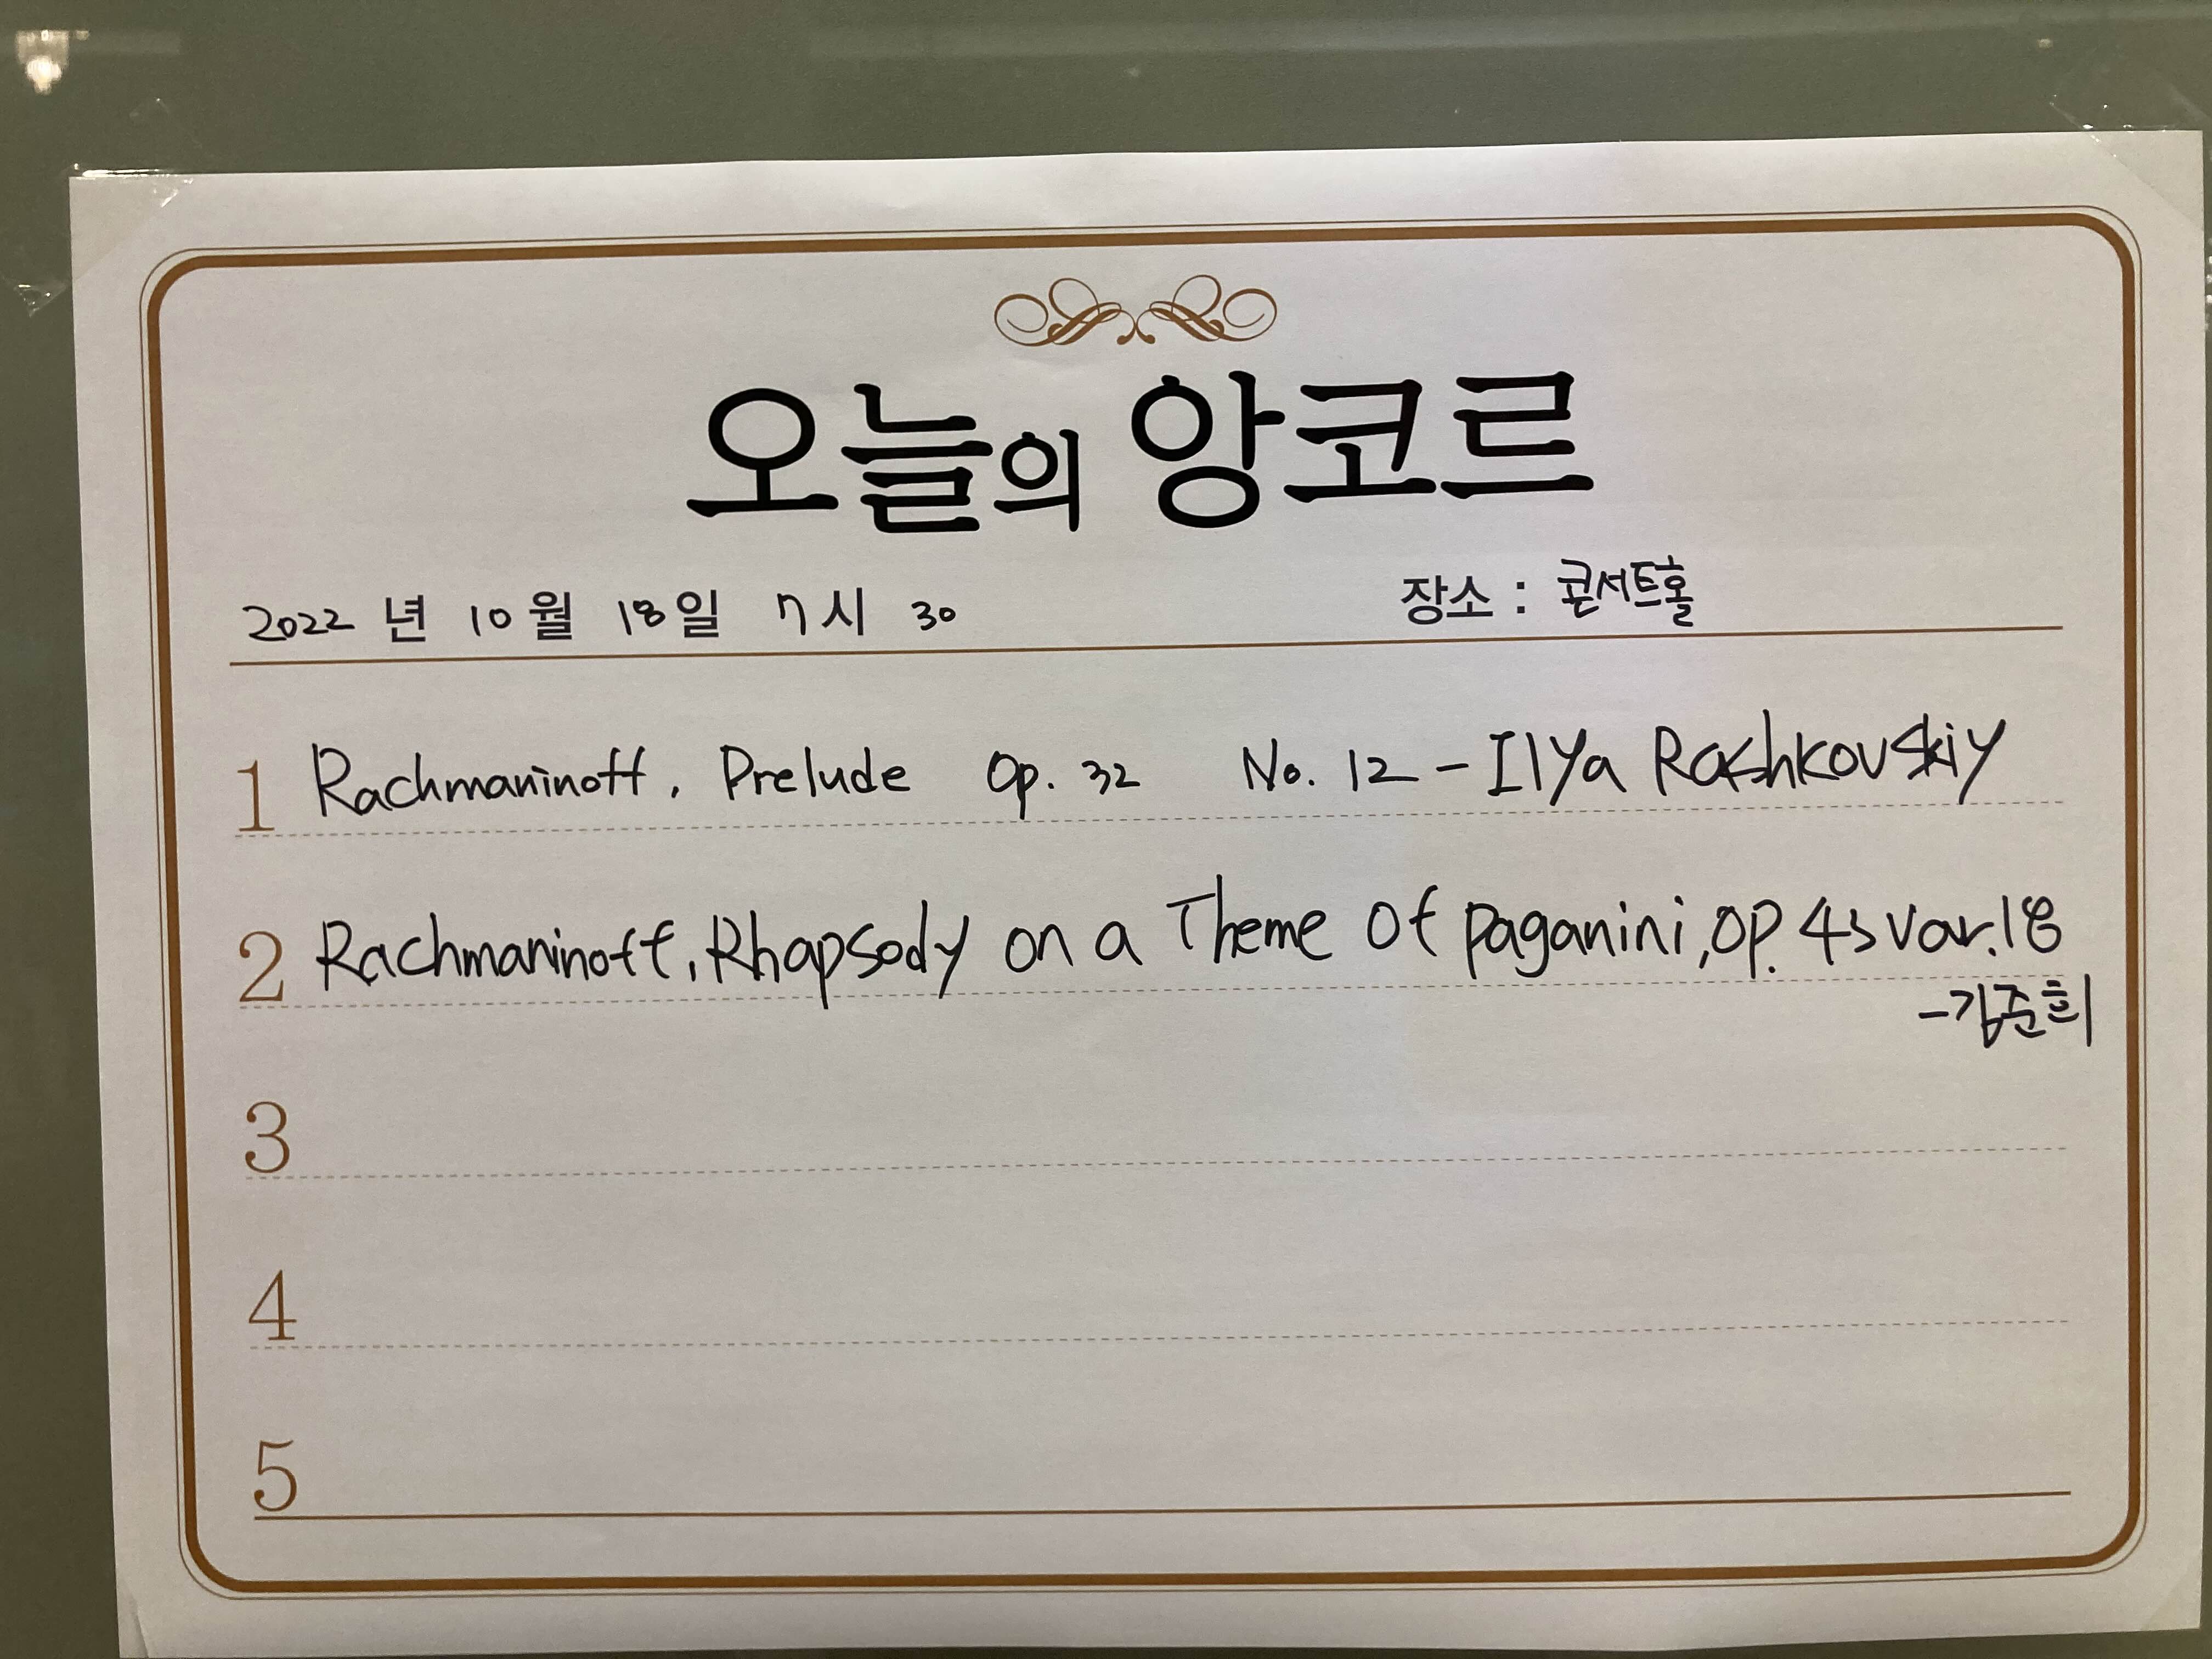 오늘의 앙코르
2022 년 10 월 18 일 7 시 30 장소 : 콘서트홀
1 Rachmaninoff, Prelude Op. 32 No. 12 - Ilya Rashkovskiy
2 Rachmaninoff, Rhapsody on a Theme Of Paganini, Op. 43 Var. 18
- 김준희
3
4
5